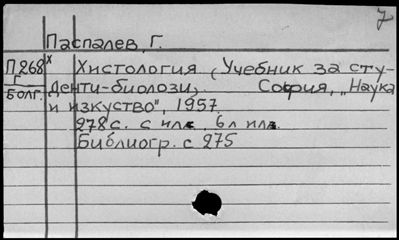 7
Паспалев, Г.
П268х Хистология (Учебник за сту-
Г
Болг. денти-биолози). София, „Наука
и изкуство", 1957.
278 с. с ил., 6 л ил.
Библиогр. с 275